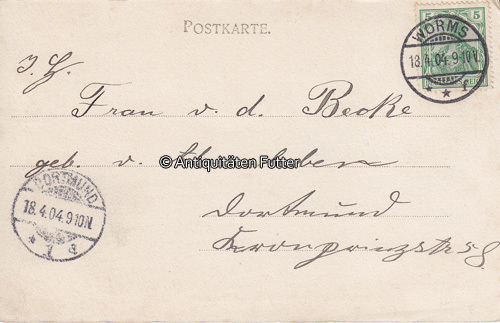 POSTKARTE.
5 5
WORMS
18.4.04.9-10N.
* * f
Frau v. d. Becke
geb. v.
© Antiquitäten Futter
DORTMUND
18.4.04.9-10N.
* 1 d
Dortmund
Kronprinzstr 58